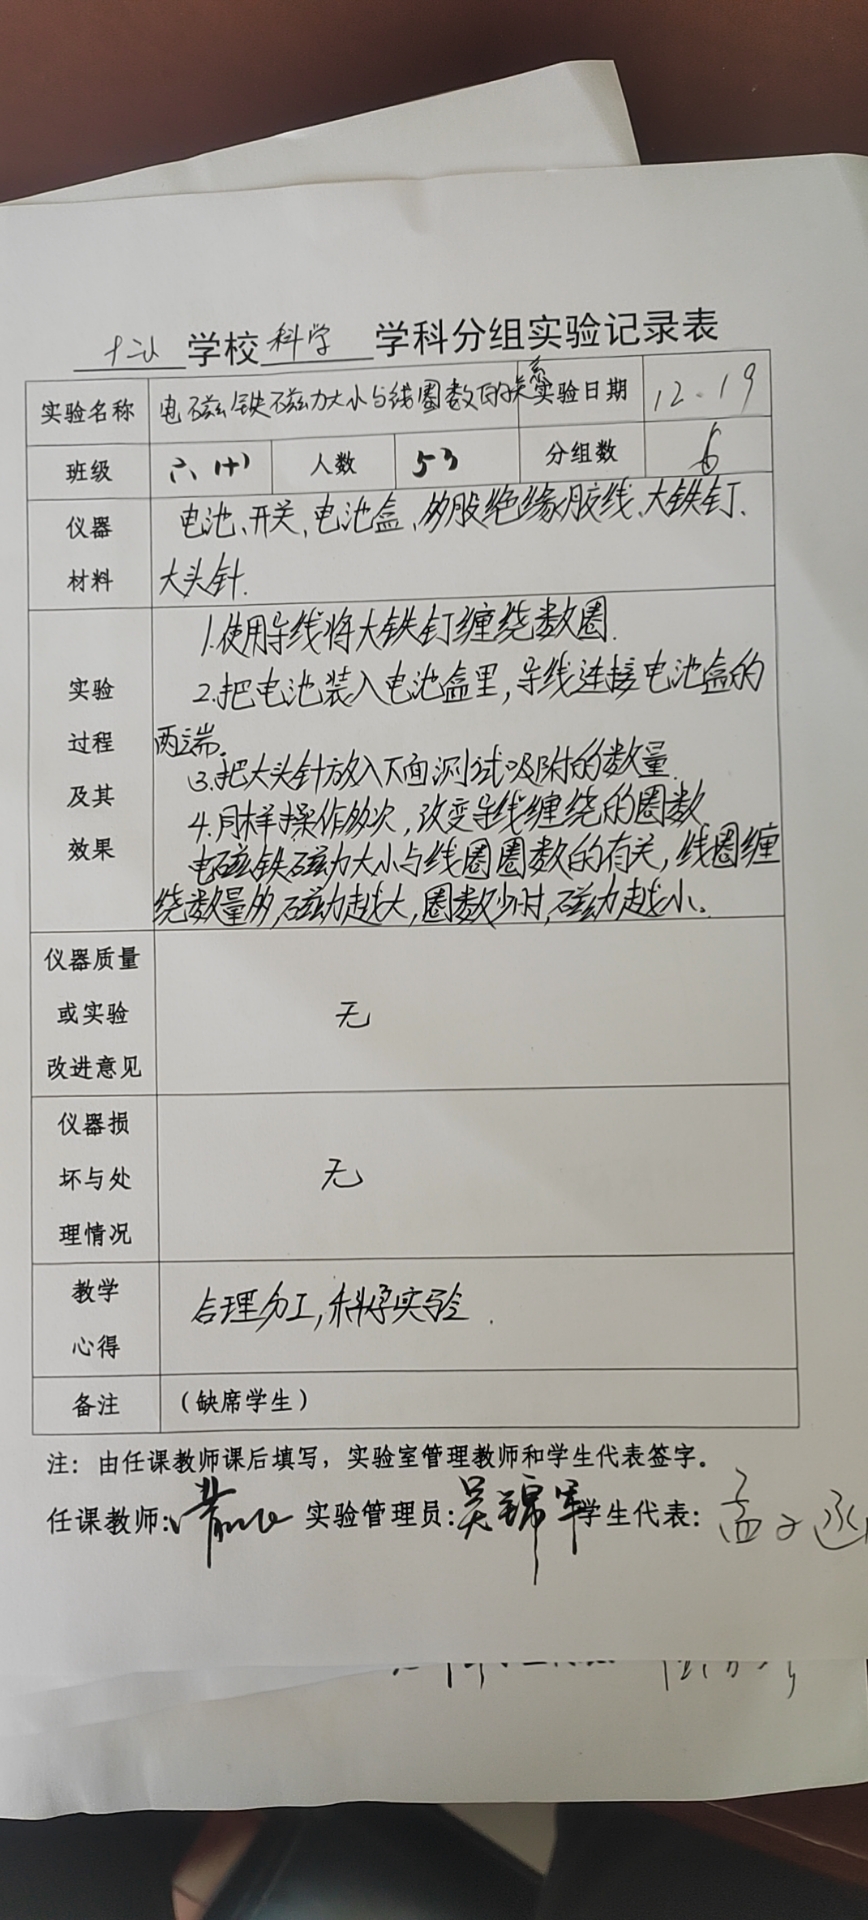 十二小学校科学学科分组实验记录表
实验名称 电磁铁磁力大小与线圈数的关系 实验日期 12.19
班级 六、(十) 人数 53 分组数 6
仪器材料 电池、开关、电池盒、多股绝缘胶线、大铁钉、
大头针.
实验过程及其效果 1.使用导线将大铁钉缠绕数圈.
2.把电池装入电池盒里,导线连接电池盒的
两端。
3.把大头针放入下面测试吸附的数量.
4.同样操作多次,改变导线缠绕的圈数
电磁铁磁力大小与线圈圈数的有关,线圈缠
绕数量多,磁力越大,圈数少时,磁力越小。
仪器质量或实验改进意见 无
仪器损坏与处理情况 无
教学心得 合理分工,科学实验.
备注 (缺席学生)
注:由任课教师课后填写,实验室管理教师和学生代表签字。
任课教师: 实验管理员:吴锦军 学生代表:孟子